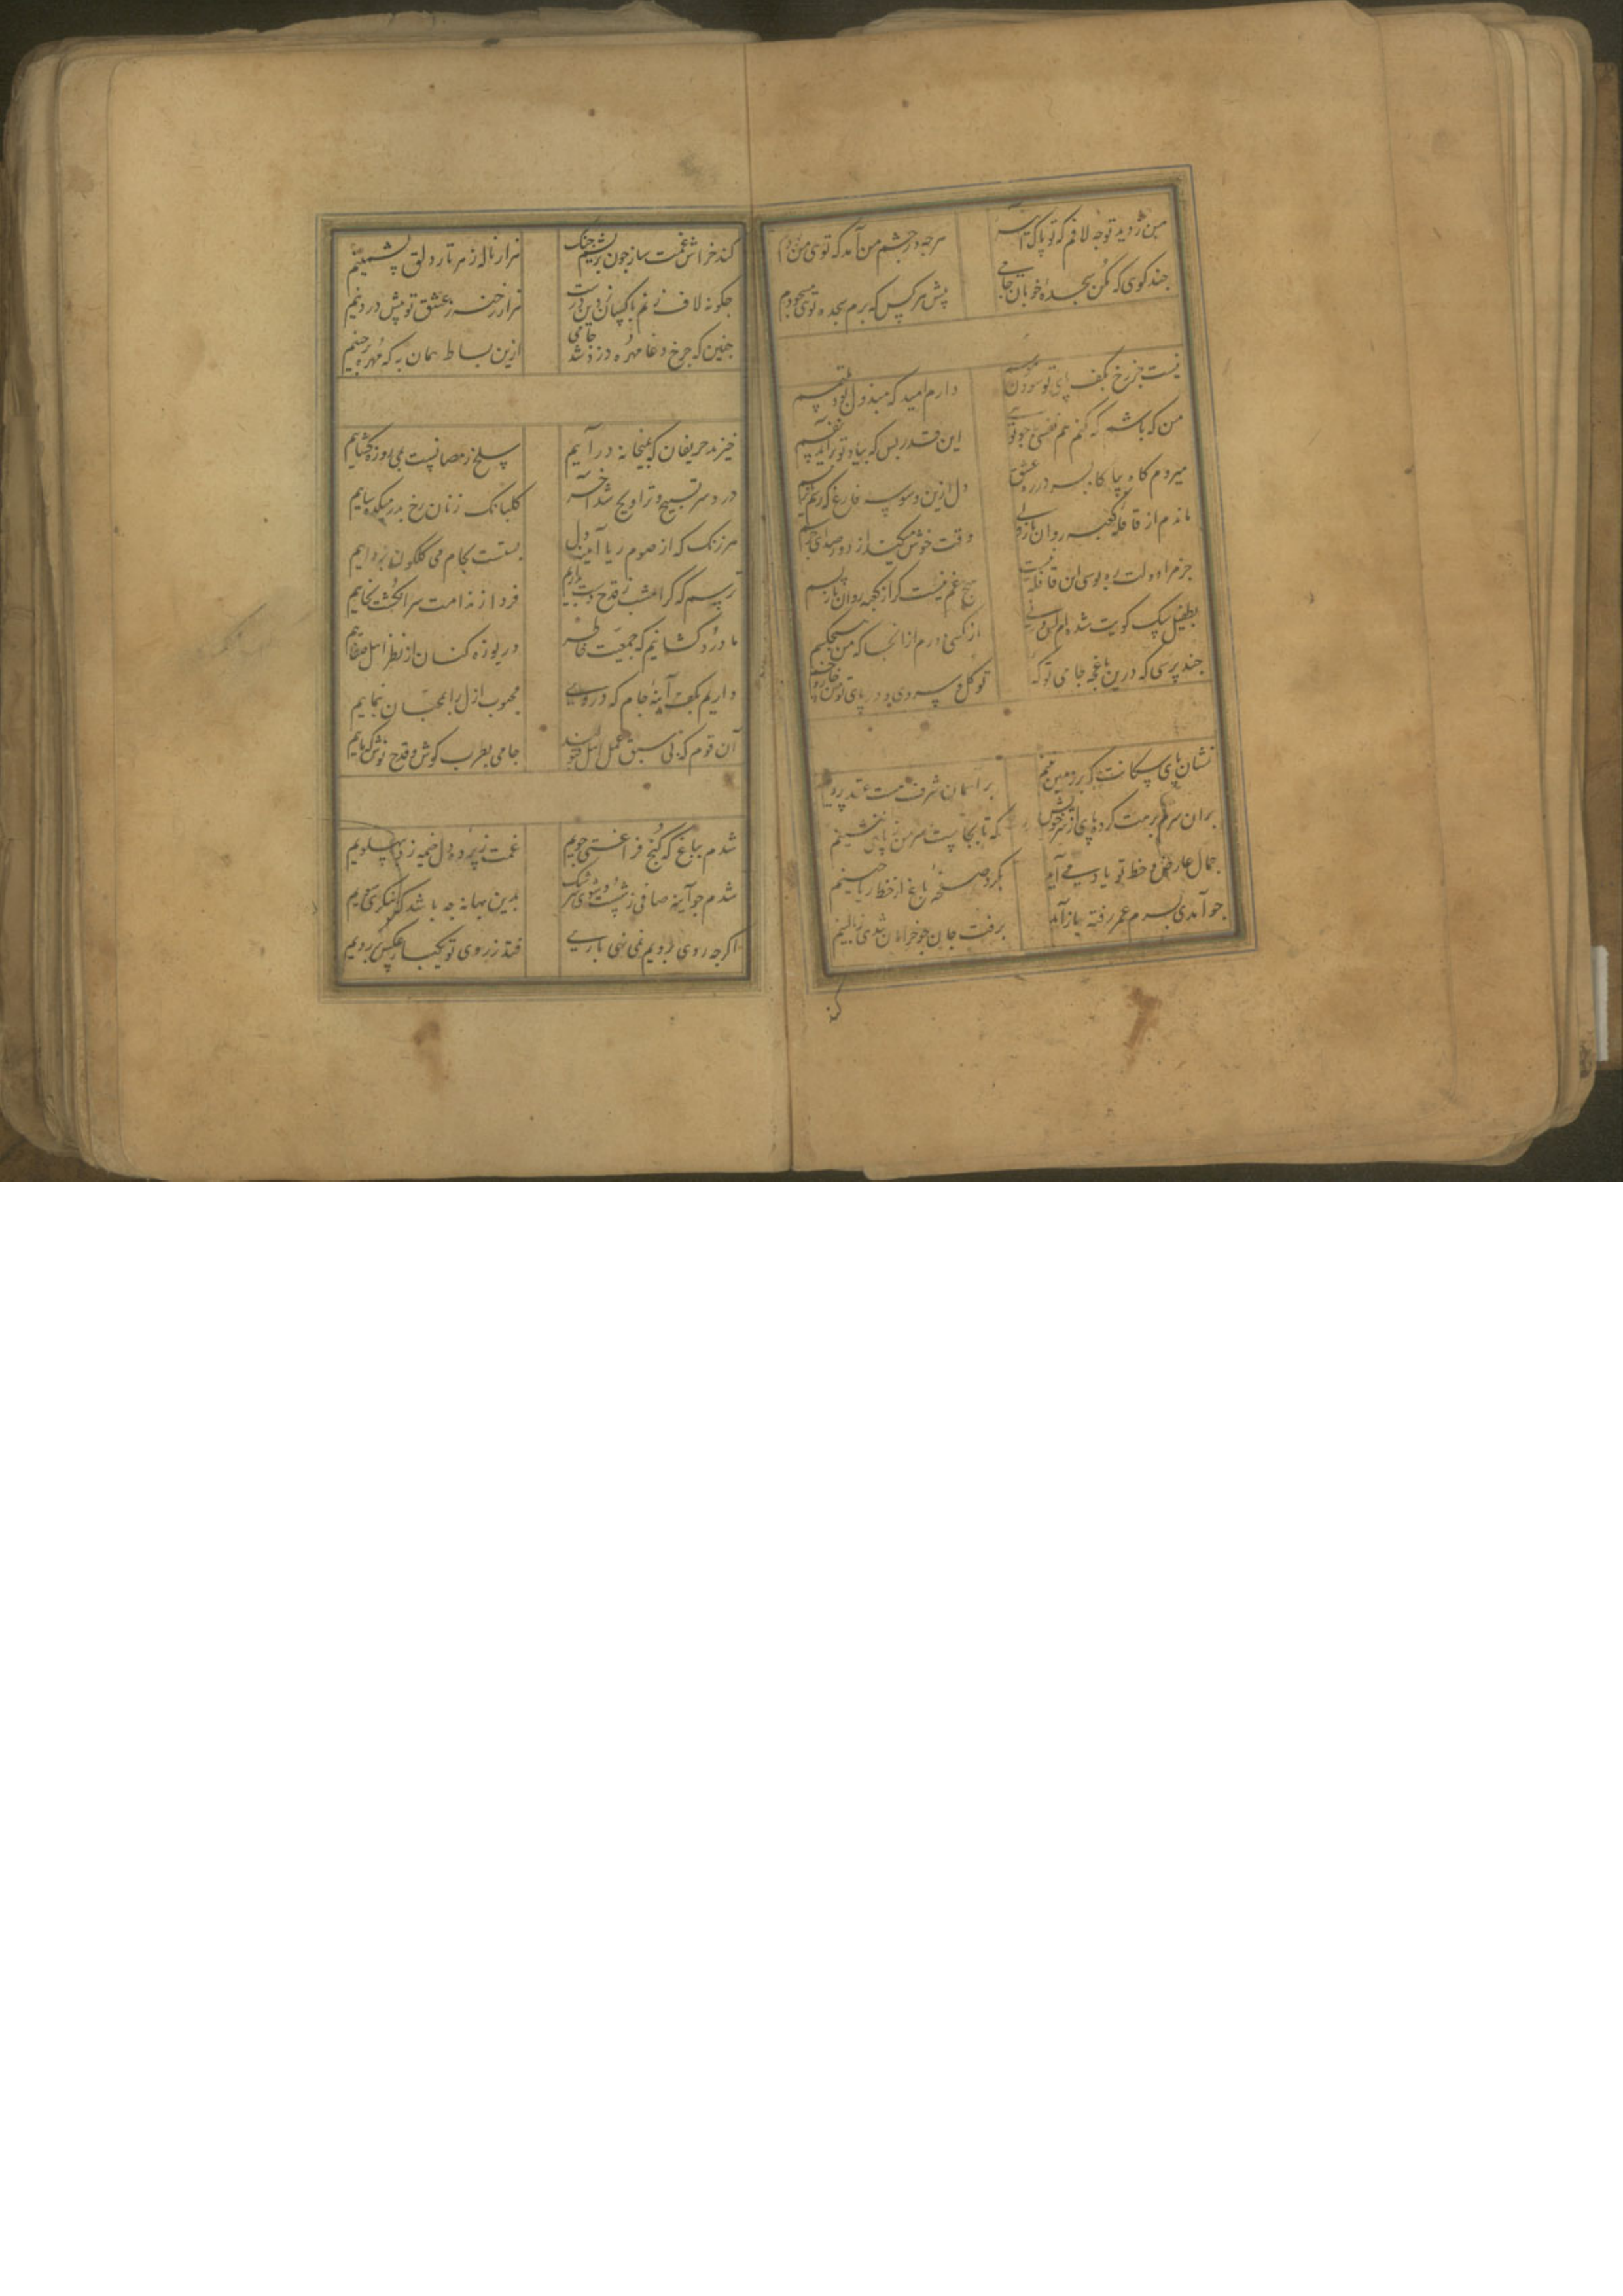 من ز دید تو چه لافم که تو پاک آمده هرچه در چشم من آمد که توی من بودم
چند کوی که مکن سجدهٔ خوبان جامی پیش هرکس که برم سجده توی مسجودم
نیست جز رخ بکف پای تو سودن هوسم دارم امید که مبذول بود ملتمسم
من که باشم که کنم هم نفسی چو توی این قدر بس که بیاد تو برآید نفسم
میروم کاه بپا کاه بسر در ره عشق دل ازین وسوسه فارغ که رسم یا نرسم
ماندم از قافلهٔ کعبه روان بازولی وقت خوش میکند از دور صدای جرسم
جز مرا دولت ره بوسی این قافله نیست هیچ غم نیست کر از کعبه روان بازپسم
بطفیل سک کویت شده‌ام کس ورنی از کسی دورم از انجا که من هیچکسم
چند پرسی که درین باغچه جامی تو که تو کل و سروی و در پای تو من خار و خسم
نشان پای سکانت که بر زمین بینم بر آسمان شرف هست عقد پروینم
بران سرم که برهت کرده پای از سر خویش که تا بجاست سر من ز پای ننشینم
جمال عارض و خط تو یاد می آید بکرد صفحهٔ باغ از خط ریاحینم
چو آمدی بسرم عمر رفته باز آمد برفت جان چو خرامان شدی ز بالینم
کند خراش غمت ساز چون بریشم چنک هزار ناله ز هر تار دلق پشمینم
چکونه لاف زنم با کسان ز دین درست هزار رخنه ز عشق تو پیش در دینم
چنین که چرخ دغا مهره دزد شد جامی ازین بساط همان به که مهره برچینم
خیزید حریفان که بمیخانه درآییم سلخ رمضانست بمی روزه کشاییم
درد سر تسبیح و تراویح شد آخر کلبانک زنان رخ بدر میکده ساییم
هر زنک که از صوم ریا آمده بر دل بنشست بجام می کلکون بزداییم
ترسم که کر امشب ز قدح دست بداریم فردا ز ندامت سر انکشت بخاییم
ما درد کشانیم که جمعیت خاطر دریوزه کنان از نظر اهل صفاییم
داریم بکف آینهٔ جام که در وی محبوب ازل را بمحبان بنماییم
آن قوم که بی سبق عمل اهل قبولند جامی بطرب کوش و قدح نوش که ماییم
شدم بباغ که کنج فراغتی جویم غمت ز پردهٔ دل خیمه زد بپهلویم
شدم چو آینه صافی ز شست و شوی سرشک بدین بهانه چه باشد که بنکری سویم
اکرچه روی برویم نمی نهی باری فتد ز روی تو یکبار عکس بر رویم